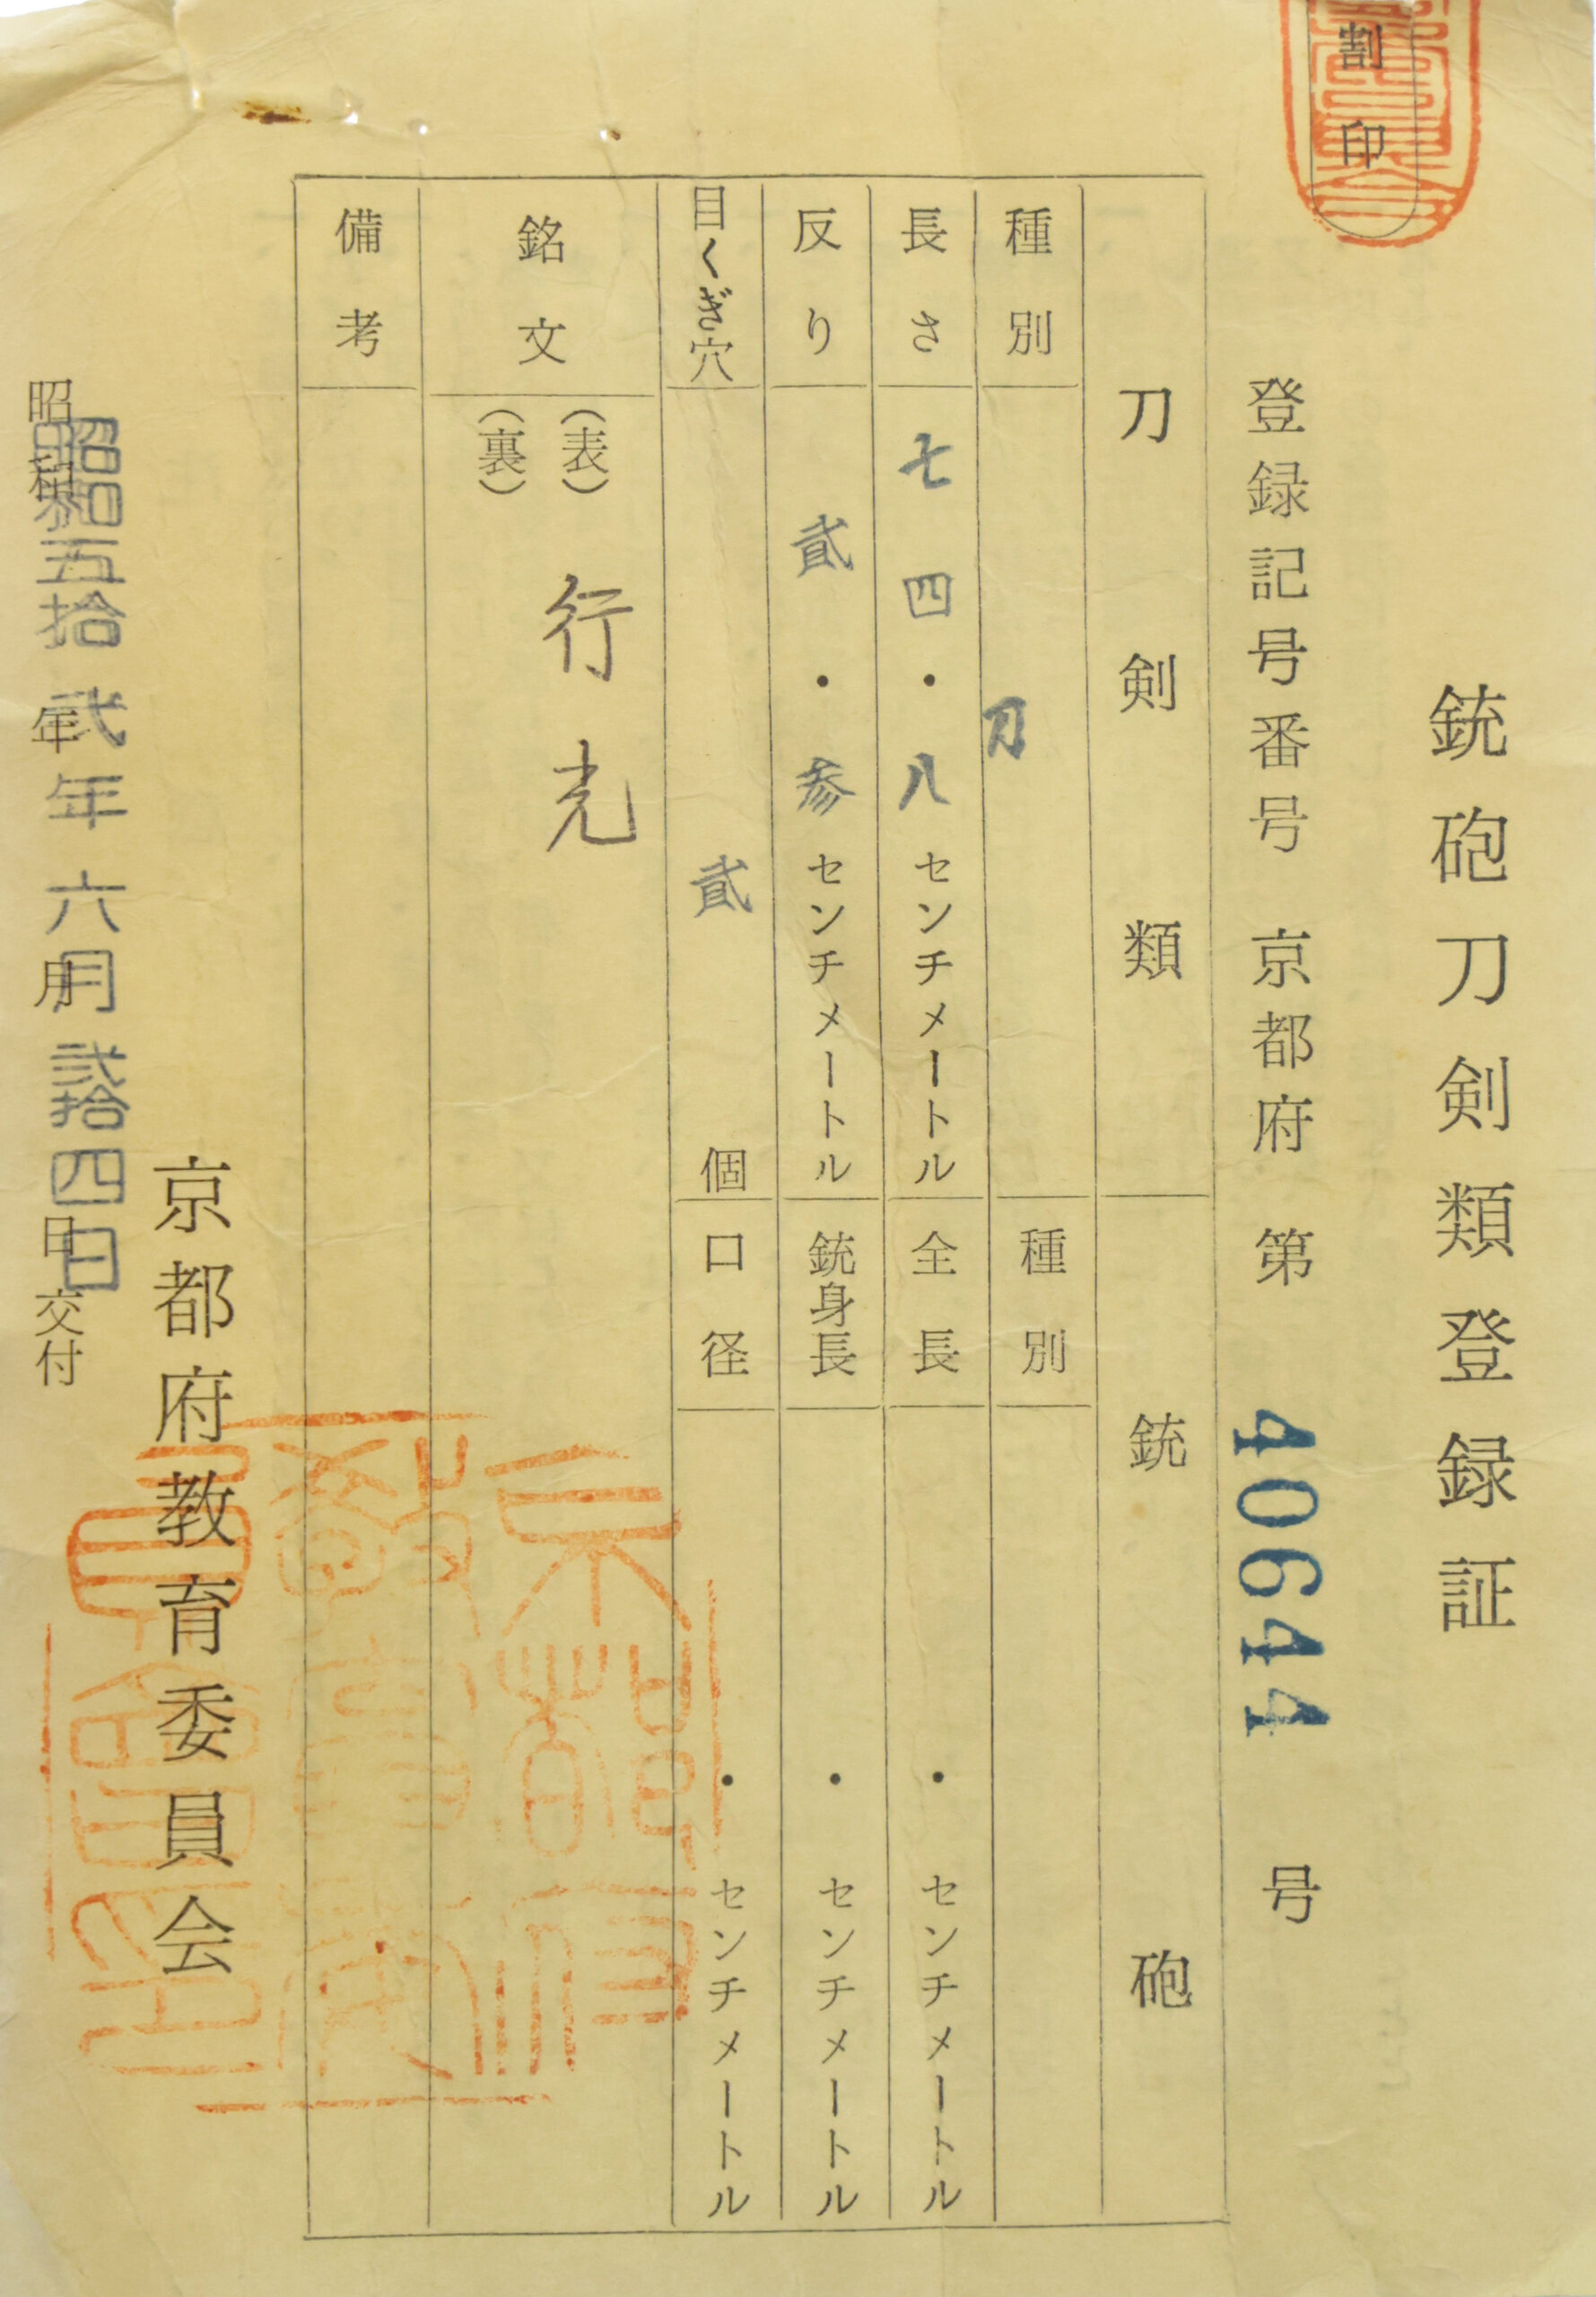 割印
銃砲刀剣類登録証
登録記号番号 京都府 第 40644 号
刀剣類
種別 刀
長さ 七四・八センチメートル
反り 貳・参センチメートル
目くぎ穴 貳 個
銘文 (表) 行光
(裏)
備考
銃砲
種別
全長 ・ センチメートル
銃身長 ・ センチメートル
口径 ・ センチメートル
京都府教育委員会
昭和 年 月 日交付
昭和五拾弐年六月弐拾四日